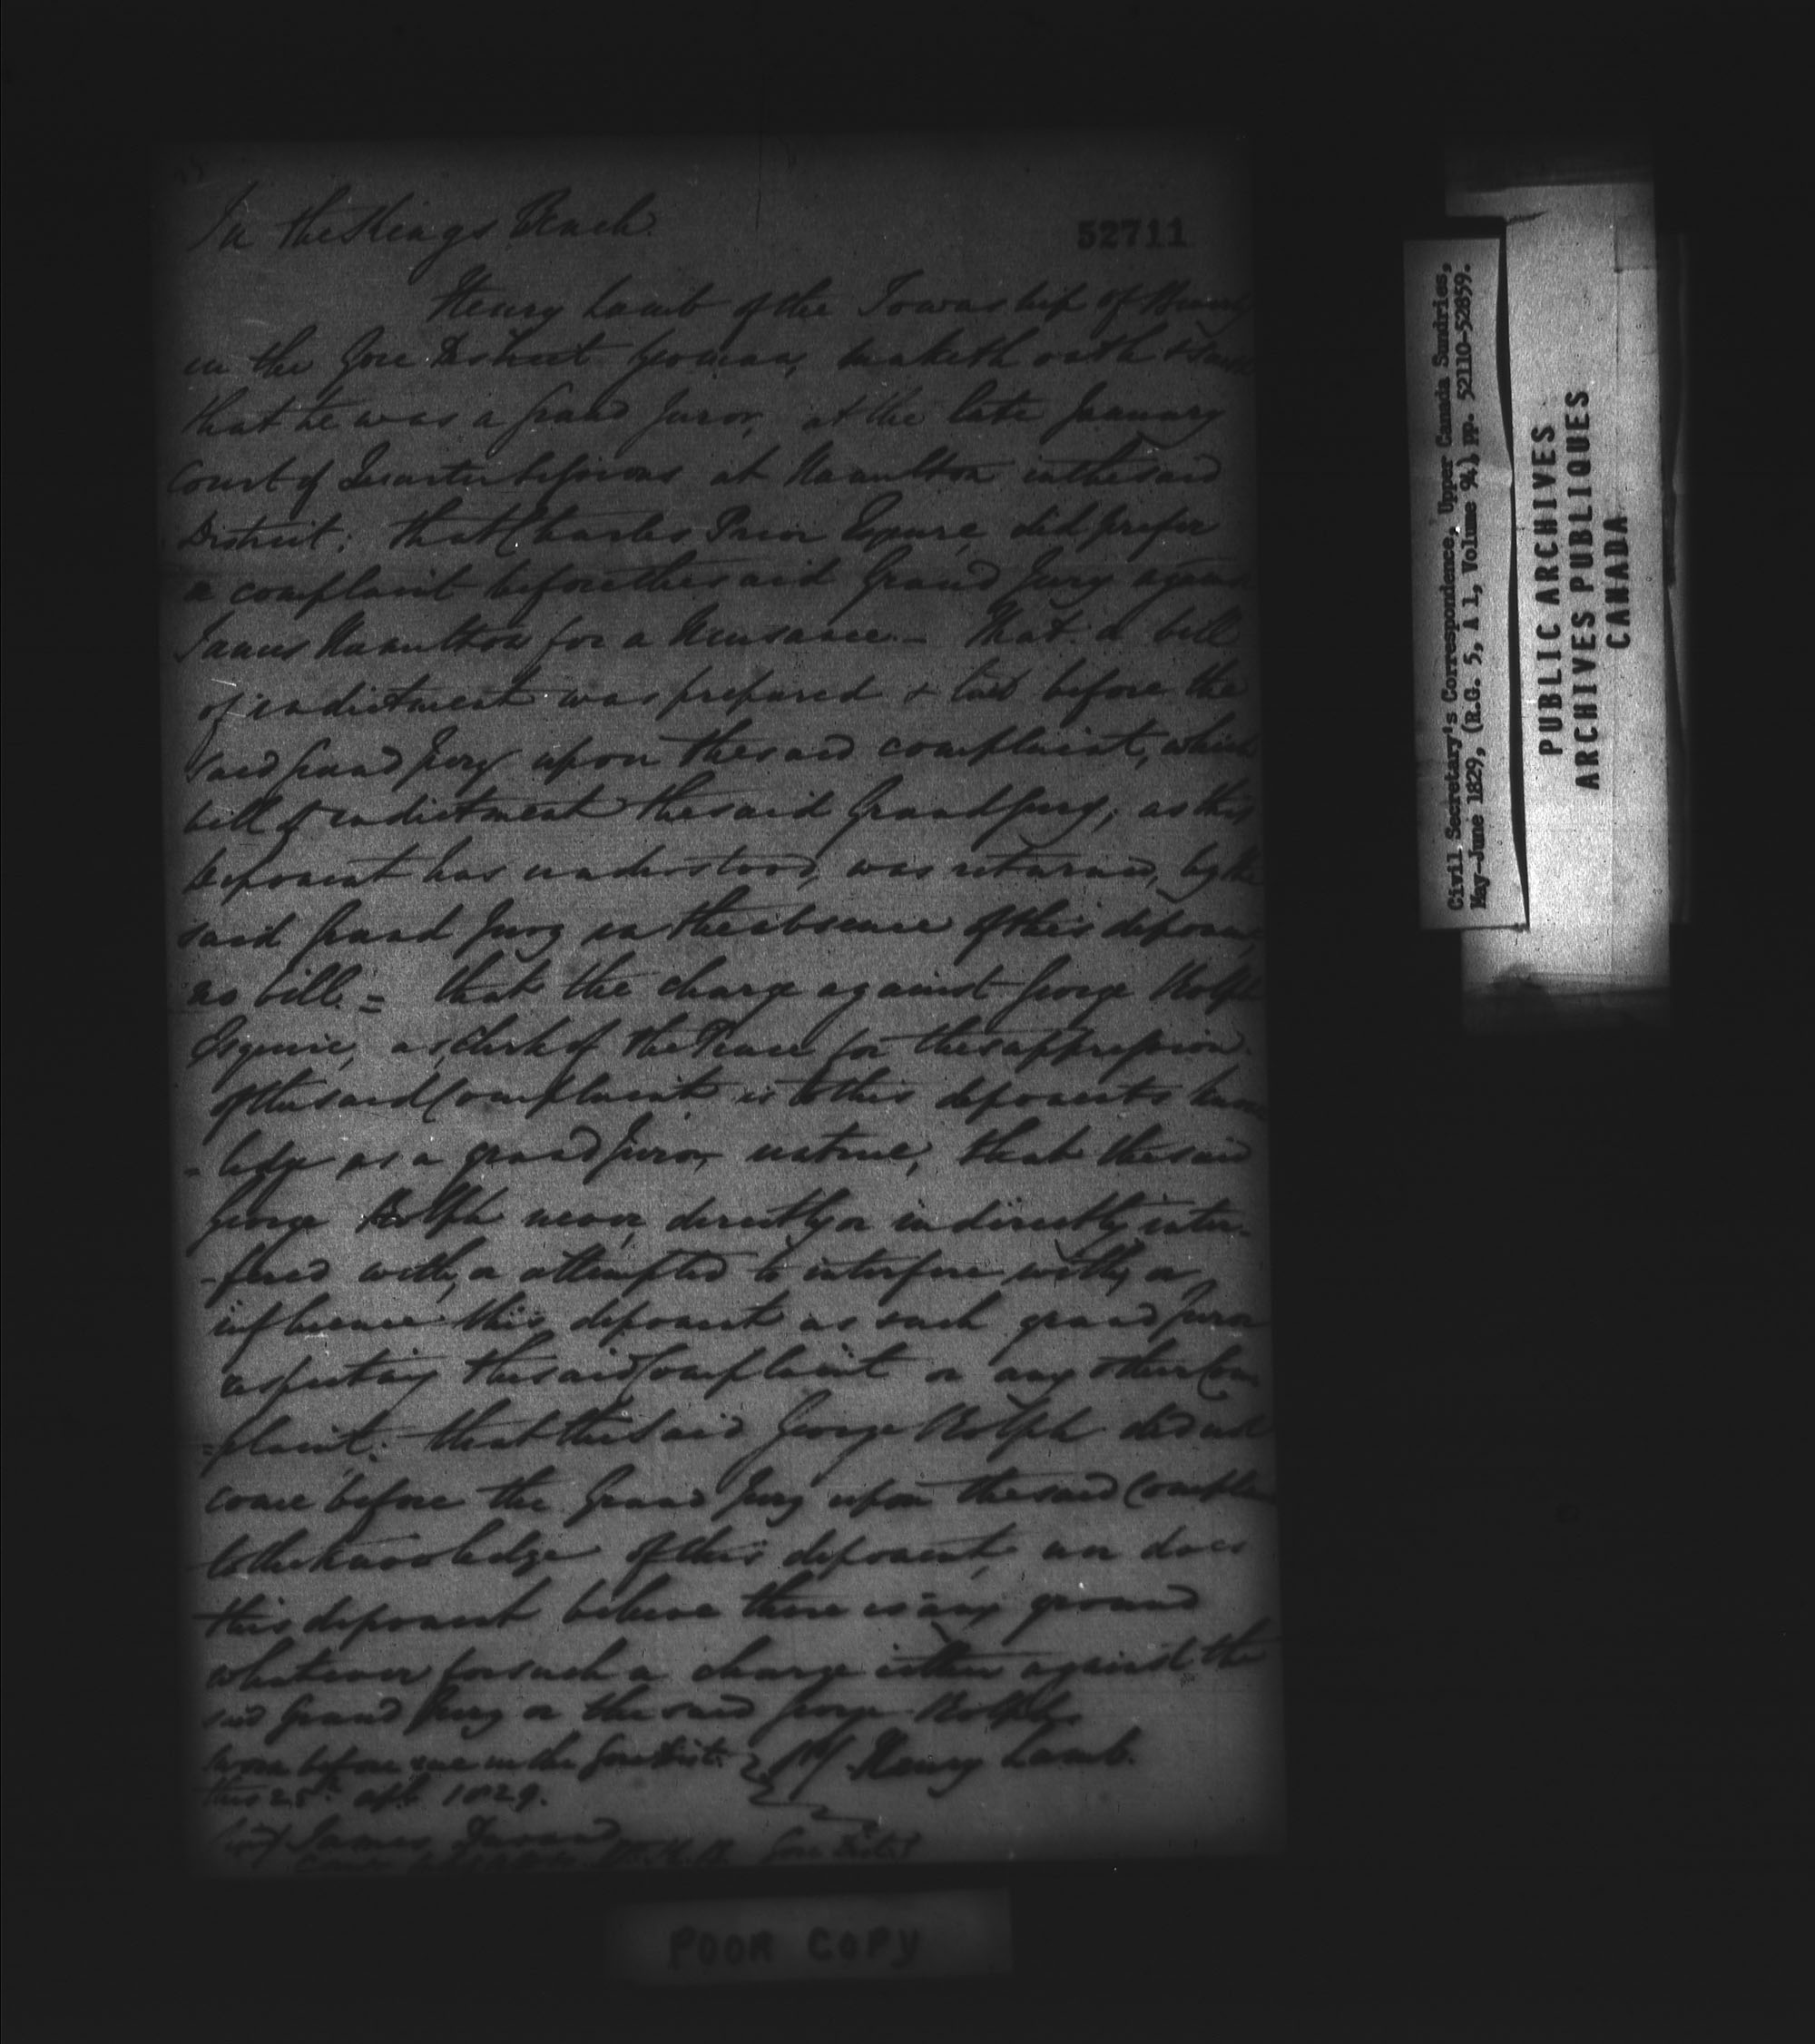 In the Kings Bench
52711
Henry Lamb of the Township of
in the Gore District yeoman, maketh oath &
that he was a Grand Juror, at the late January
Court of Quarter Sessions at Hamilton in the said
District; that Charles Prior Esquire, did prefer
a complaint before the said Grand Jury against
James Hamilton for a Nuisance.— That a bill
of indictment was prepared & laid before the
said Grand Jury upon the said complaint, which
bill of indictment the said Grand Jury, as this
deponent has understood, was returned, by the
said Grand Jury in the absence of this deponent,
no bill.= that the charge against George Rolph
Esquire, as Clerk of the Peace for the suppression
of the said Complaint is to this deponents know
=ledge as a grand Juror, untrue, that the said
George Rolph never, directly or indirectly inter-
-fered with, or attempted to interfere with, or
influence this deponent as such grand Juror
respecting the said Complaint or any other Com
=plaint: that the said George Rolph did not
come before the Grand Jury upon the said Complaint
to the knowledge of this deponent, nor does
this deponent believe there is any ground
whatever for such a charge either against the
said Grand Jury or the said George Rolph.
Sworn before me in the Gore Dist. Henry Lamb.
this 25th apl 1829.
James Durand
Gore Dist.
POOR COPY
Civil Secretary's Correspondence, Upper Canada Sundries,
May-June 1829, (R.G. 5, A 1, Volume 94) pp. 52110-52859.
PUBLIC ARCHIVES
ARCHIVES PUBLIQUES
CANADA